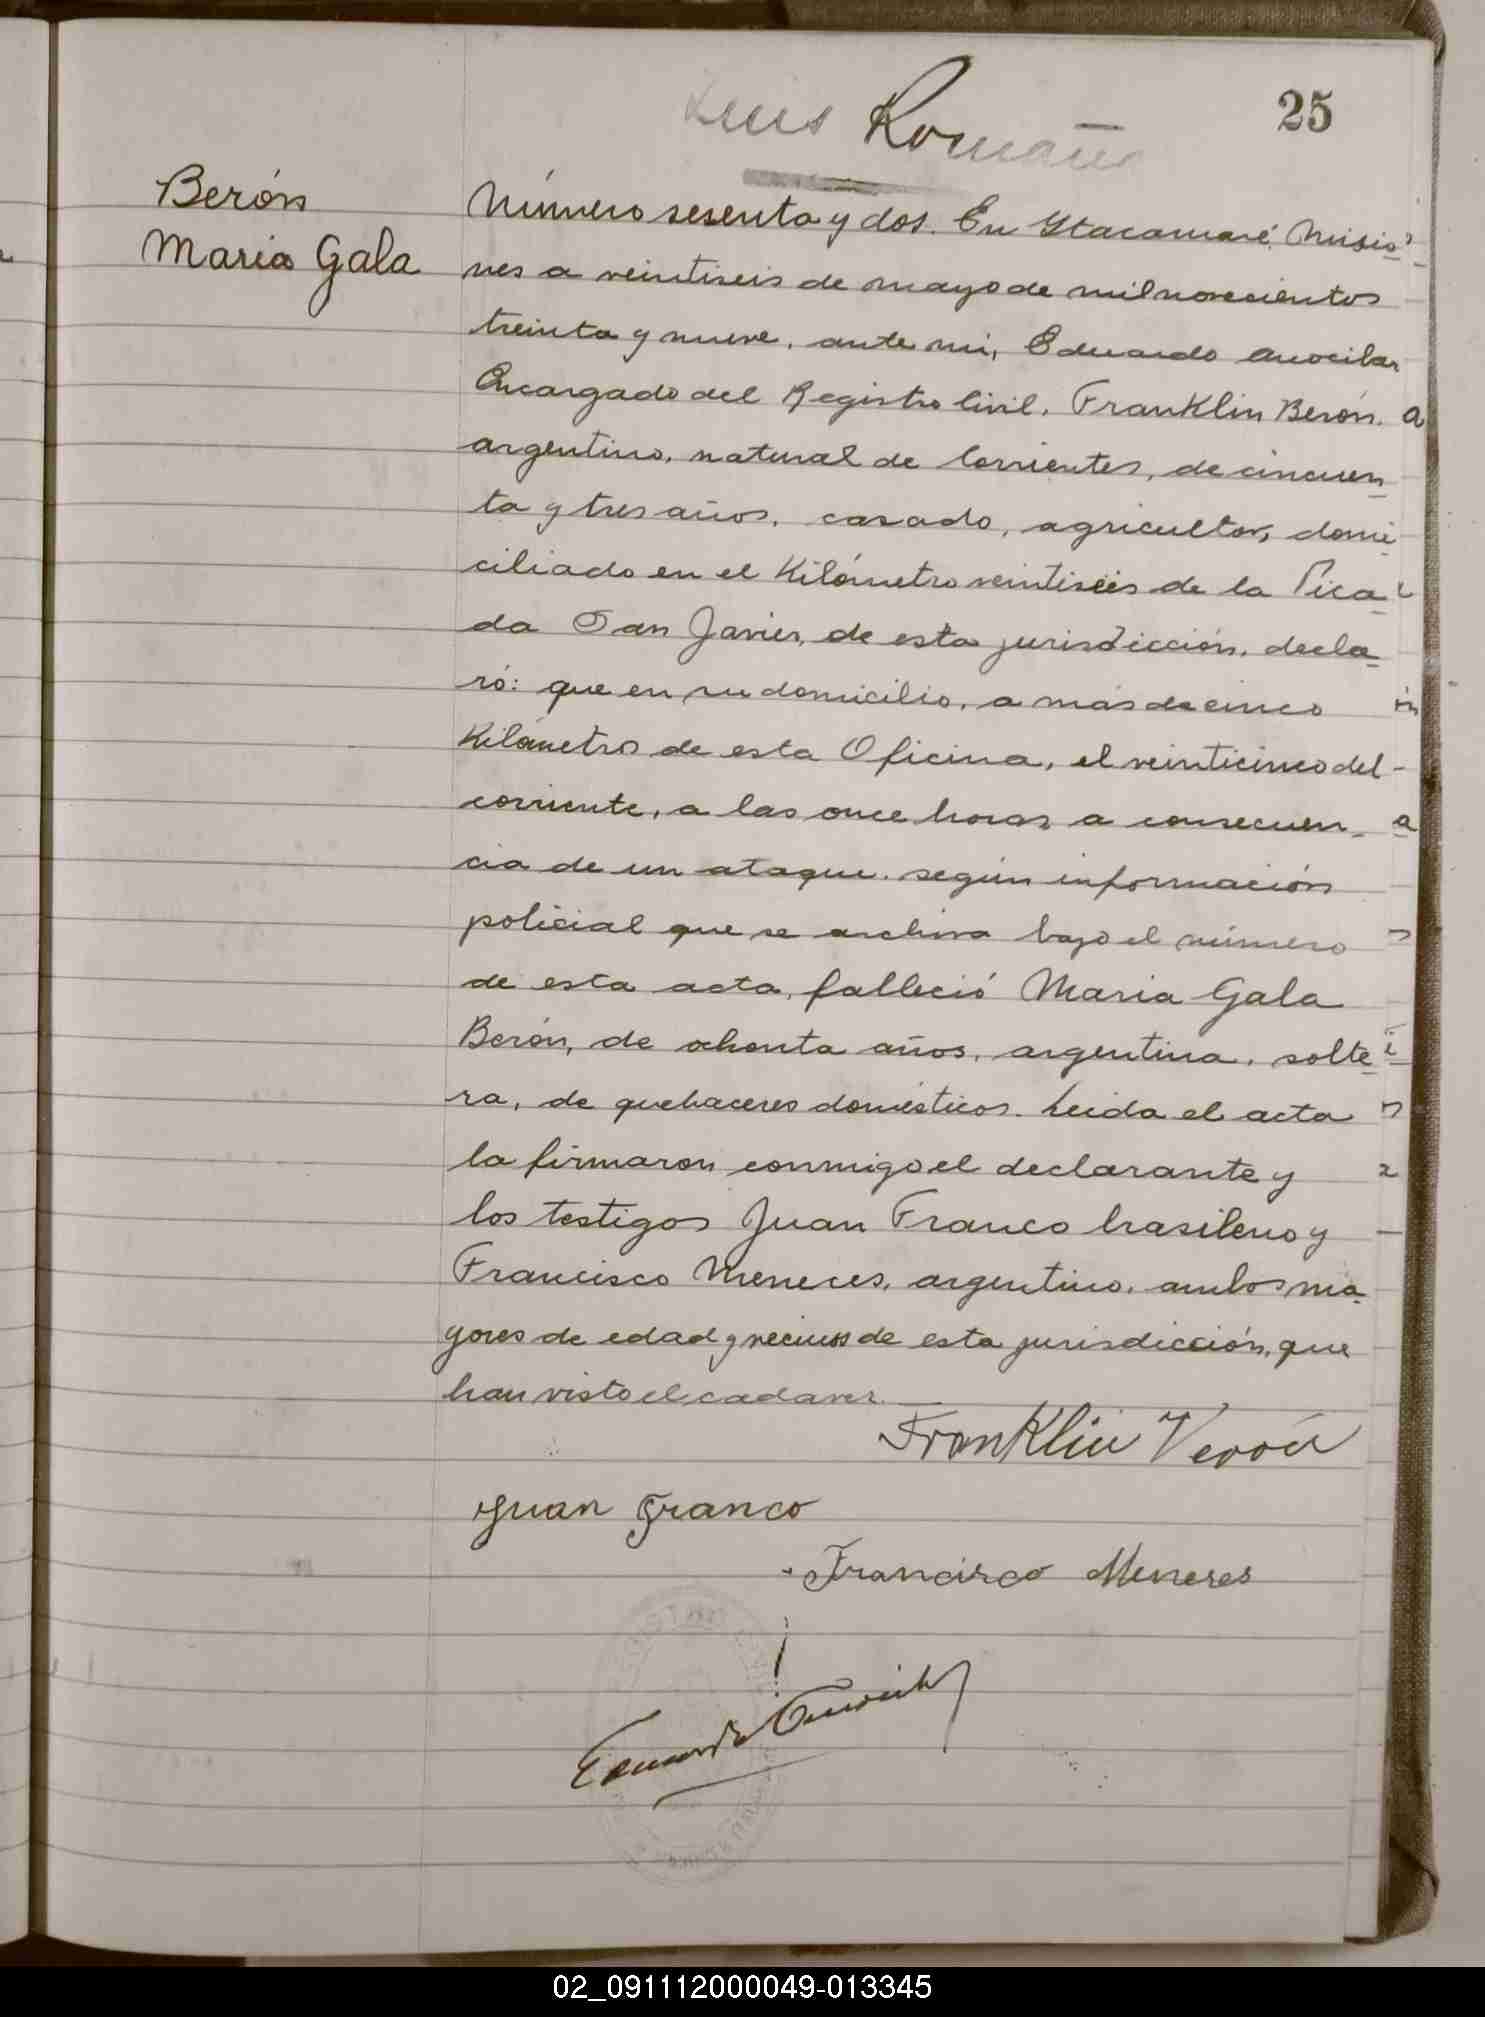 Luis Romano
25
Berón
Maria Gala
Número sesenta y dos. En Itacaruaré, Misio
nes a veintiseis de mayo de mil novecientos
treinta y nueve, ante mi, Eduardo
Encargado del Registro Civil, Franklin Berón,
argentino, natural de Corrientes, de cincuen
ta y tres años, casado, agricultor, domi
ciliado en el Kilómetro veintiséis de la Pica
da San Javier, de esta jurisdicción, decla
ró: que en su domicilio, a más de cinco
Kilómetros de esta Oficina, el veinticinco del
corriente, a las once horas a consecuen
cia de un ataque. según información
policial que se archiva bajo el número
de esta acta, falleció Maria Gala
Berón, de ochenta años, argentina, solte
ra, de quehaceres domésticos. Leida el acta
la firmaron conmigo el declarante y
los testigos Juan Franco brasileno y
Francisco Meneces, argentino, ambos ma
yores de edad y vecinos de esta jurisdicción, que
han visto el cadaver.
Franklin Verón
Juan Franco
Francisco Meneses
Eduardo
02_091112000049-013345